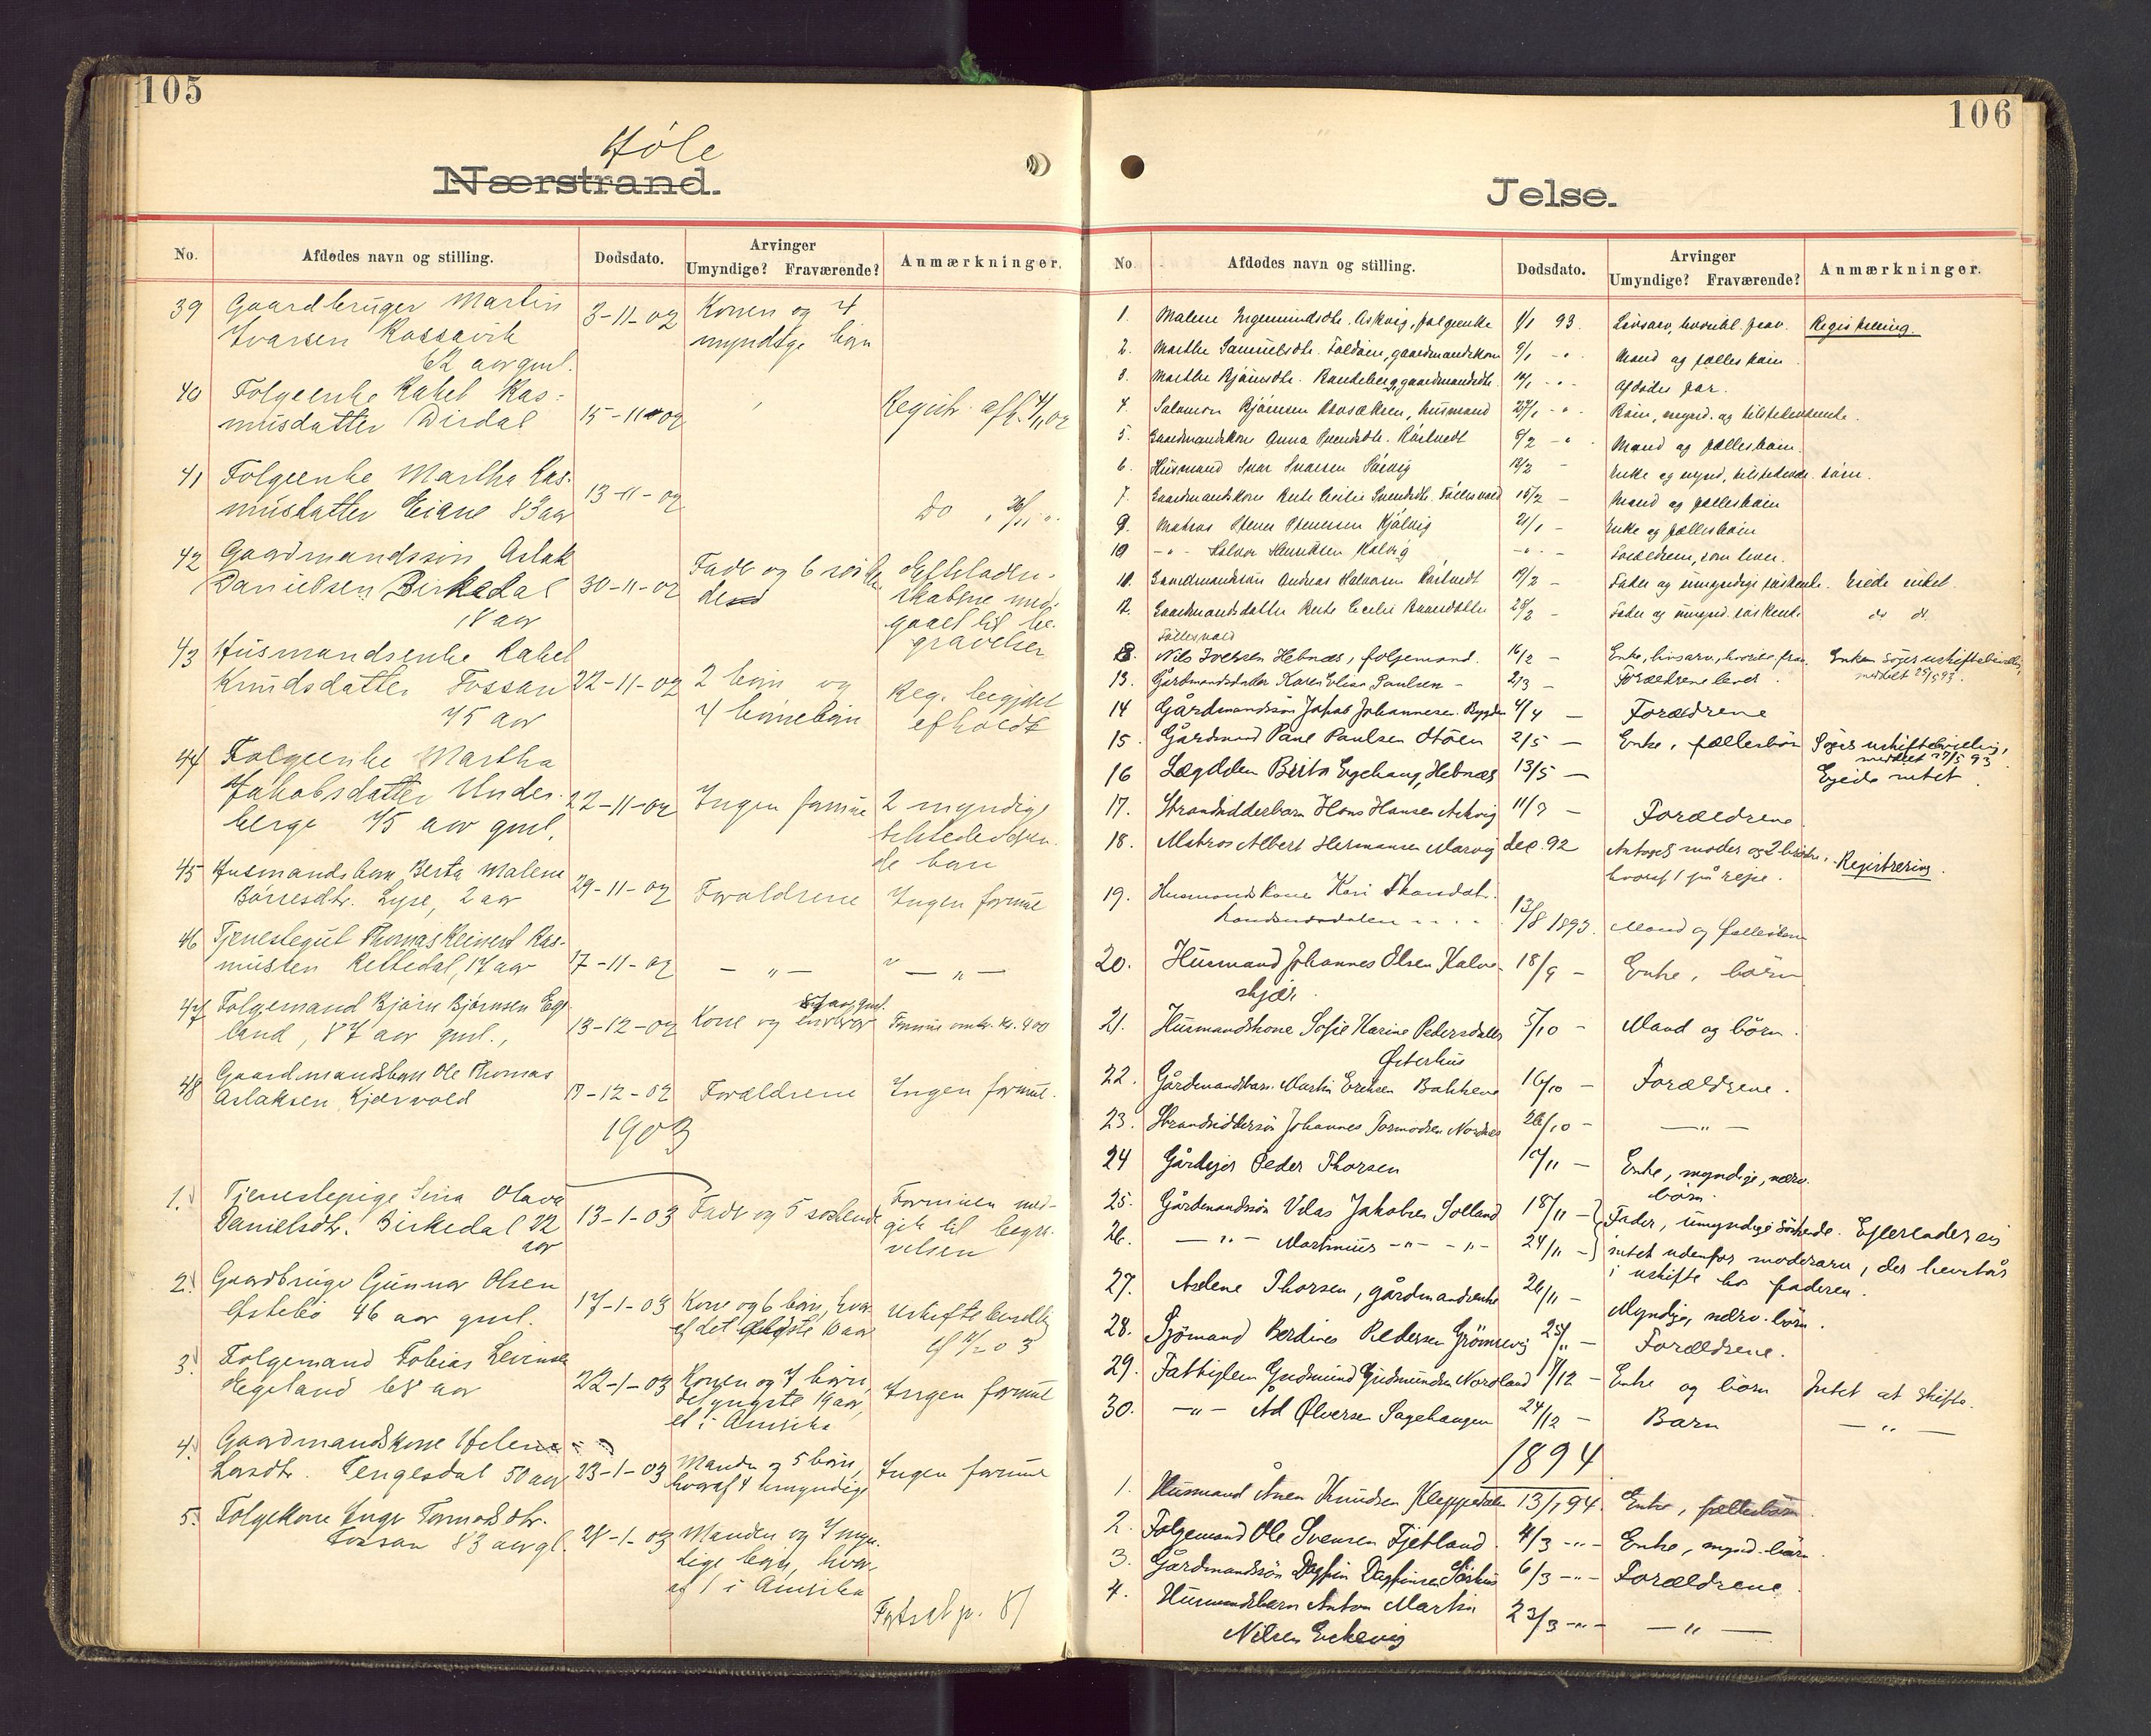 105
Høle
Nærstrand.
No. Afdødes navn og stilling. Dødsdato. Arvinger Umyndige? Fraværende? Anmærkninger.
39 Gaardbruger Martin 3-11-02 Konen og 4
Ivarsen Kossavik myndige børn
62 aar gml.
40 Folgeenke Rakel Ras- Registr. afh. 4/11 02
musdatter Dirdal 15-11-02
41 Folgeenke Martha Ras- 13-11-02
musdatter Eiane 83 aar Do
42 Gaardmandssøn Aslak Fader og 6 Efterladen-
Danielsen Birkedal 30-11-02 skaberne med-
18 aar gaaet til be-
gravelsen
43 Husmandsenke Rakel
Knudsdatter Fossan 22-11-02 2 børn og Reg. begjært
75 aar 4 børnebørn afholdt
44 Folgeenke Martha
Jakobsdatter Under- 22-11-02 Ingen formue 2 myndige
berge 75 aar gml. tilstedeværen-
de børn
45 Husmandsbarn Berta Malene 29-11-02 Forældrene Ingen formue
Børresdtr. Lyse, 2 aar
46 Tjenestegut Thomas Reinert Ras-
mussen Rettedal, 17 aar 17-11-02 — „ — — „ —
47 Folgemand Bjørn Bjørnsen Ege- 13-12-02 Kone og Formue omtr. Kr. 400
land, 87 aar gml.,
48 Gaardmandsbarn Ole Thomas
Aslaksen Kjærvold 17-12-02 Forældrene Ingen formue.
1903
1. Tjenestepige Sina Olava 13-1-03 Fader og 5 søskende Formuen med-
Danielsdtr. Birkedal 22 gik til begra-
aar velsen
2. Gaardbruger Gunnar Olsen
Østebø 46 aar gml. 17-1-03 Kone og 6 børn, hvor- Uskiftebevilling
af det ældste 10 aar
3. Folgemand Tobias Levinsen
Egeland 68 aar 22-1-03 Konen og 7 børn, Ingen formue
det yngste 19 aar,
et i Amerika
4. Gaardmandskone Helene
Larsdtr. Tengesdal 50 aar 23-1-03 Manden og 5 børn, Ingen formue
hvoraf 4 umyndige
5. Folgekone Inger Tormodsdtr.
Fossan 83 aar gl. 28-1-03 Manden og 7 myn-
dige børn, hvor-
af 1 i Amerika
Fortsat p. 81
106
Jelse.
No. Afdødes navn og stilling. Dødsdato. Arvinger Umyndige? Fraværende? Anmærkninger.
1. Malene Ingemundsdtr. Askvig, folgeenke 1/1 93. Livsarv., hvoribl. frav. Registrering.
2. Marthe Samuelsdtr. Foldøen, gaardmandskone 9/1 - „ Mand og fælles børn
3. Marthe Bjørnsdtr. Randeberg, gaardmandsdtr. 10/1 - „ - Afdødes far.
4. Salomon Bjørnsen, husmand 27/1 - „ Børn, mynd. og tilstedeværende.
5. Gaardmandskone Anna Røstvedt 8/2 - „ Mand og fællesbørn.
6. Husmand Ivar Ivarsen 12/2 - Enke og mynd. tilstedevær. børn.
7. Gaardmandskone Berte Cecilie Svendsdtr. Fattesvold 15/2 - Mand og fællesbørn
9. Matros Stener Stenersen Kjølvig 21/1 - Enke og fællesbørn
10 - „ - Halvor Henriksen Kalvig - „ - Forældrene, som lever.
10. Gaardmandssøn Andreas Halvorsen Røstvedt 19/2 - Fader og umyndige søskende. Eiede intet.
12. Gaardmandsdatter Berte Cecilie 28/2 - Fader og umynd. søskende. do do
Fattesvold
13. Nils Iversen Hebnæs, folgemand. 16/2 - Enke, livsarv., hvoribl. frav. Enken søger uskiftebevilling,
13. Gårdmandsdatter Karen Elisa Paulsen - 2/3 - Forældrene lever. meddelt 25/5 93.
14 Gårdmandssøn Jakob Johannesen Bygden 4/4 - Forældrene
15. Gårdmand Paul Paulsen Støen 2/5 - Enke, fællesbörn Søger uskiftebevilling,
meddelt 27/5 93
16 Lægdlem Brita Egehaug, Hebnæs 13/5 - Ejede intet.
17. Strandsidderbarn Hans Hansen Askvig 11/7 - Forældrene
18. Matros Albert Hermansen Marvig dec. 92 Antagel. moder og 2 brødre, Registrering.
hvoraf 1 på rejse.
19. Husmandskone Kari
13/8 1893. Mand og fællesbørn
20. Husmand Johannes Olsen Kalve- 18/9 - Enke, börn
skjær.
21. Husmandskone Sofie Karine Pedersdatter 5/10 - Mand og börn.
Østerhus
22. Gårdmandsbarn Martin Eriksen Bakkene 16/10 - Forældrene.
23. Strandsiddersøn Johannes Tormodsen Nordnes 26/10 - — „ —
24 Gårdejer Peder Thorsen 10/11 - Enke, myndige, nærv.
börn.
25. Gårdmandssøn Vilas Jakobsen Solland 18/11 - Fader, umyndige søskende. Efterlader sig
26. — „ — Martinius — „ — „ — 24/11 - intet udenfor mødrearv, der henstår
i uskifte hos faderen.
27. Axeline Thorsen, gårdmandsenke 26/11 - Myndige, nærv. börn.
28. Sjömand Berdines Pedersen Grömsvig 25/11 - Forældrene.
29. Fattiglem Gudmund Gudmundsen Nordland 17/12 - Enke og börn Intet at skifte.
30. — „ — Ad Ølversen Sagehaugen 24/12 - Barn — „ —
1894
1. Husmand Ånen Knudsen Kleppedalen 13/1 94. Enke, fællesbörn
2. Folgemand Ole Svensen Fjetland. 4/3 - „ - Enke, mynd. börn.
3. Gårdmandssøn Dagfin Dagfinsen Sörhus 6/3 - „ - Forældrene.
4. Husmandsbarn Anton Martin
Nilsen Eikevig 23/3 - „ - — „ —